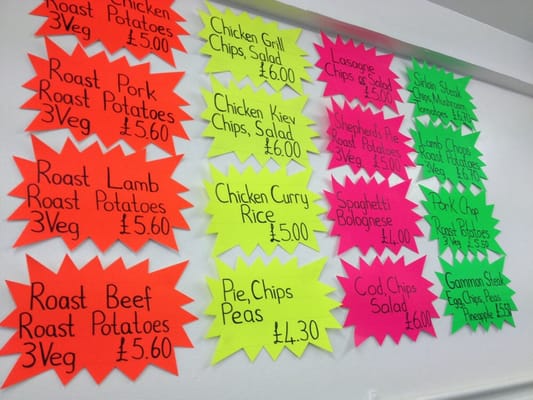 Roast Chicken
Roast Potatoes
3 Veg £5.00
Roast Pork
Roast Potatoes
3 Veg £5.60
Roast Lamb
Roast Potatoes
3 Veg £5.60
Roast Beef
Roast Potatoes
3 Veg £5.60
Chicken Grill
Chips, Salad
£6.00
Chicken Kiev
Chips, Salad
£6.00
Chicken Curry
Rice
£5.00
Pie, Chips
Peas
£4.30
Lasagne
Chips or Salad
£5.00
Shepherds Pie
Roast Potatoes
3 Veg £5.00
Spaghetti
Bolognese
£4.00
Cod, Chips
Salad
£6.00
Sirloin Steak
Chips, Mushroom
Tomatoes
Lamb Chops
Roast Potatoes
3 Veg
Pork Chop
Roast Potatoes
3 Veg £5.50
Gammon Steak
Egg, Chips, Peas
Pineapple